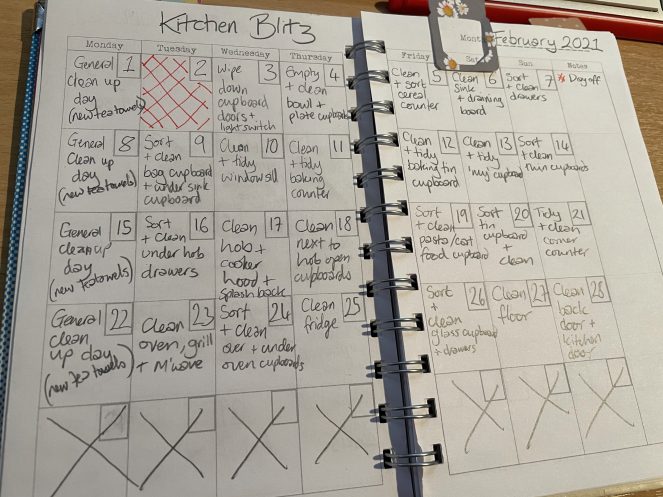 Kitchen Blitz
February 2021
Month
Monday
Tuesday
Wednesday
Thursday
Friday
Sun
Notes
General 1
clean up
day
(new teatowels)
2
Wipe 3
down
cupboard
doors +
light switch
Empty 4
+ clean
bowl +
plate cupboards
Clean 5
+ sort
cereal
counter
Clean 6
Sink
+ draining
board
Sort 7
+ clean
drawers
* Day off
General 8
Clean up
day
(new teatowels)
Sort 9
+ clean
bag cupboard
+ under sink
cupboard
Clean 10
+ tidy
windowsill
Clean 11
+ tidy
baking
counter
Clean 12
+ tidy
baking tin
cupboard
Clean 13
+ tidy
'my' cupboard
Sort 14
+ clean
cupboards
General 15
clean up
day
(new teatowels)
Sort 16
+ clean
under hob
drawers
Clean 17
hob +
cooker
hood +
splash back
Clean 18
next to
hob open
cupboards
Sort 19
+ clean
pasta/cat
food cupboard
Sort 20
tin
cupboard
+
clean
Tidy 21
+ clean
corner
counter
General 22
clean
up day
(new teatowels)
Clean 23
oven, grill
+ M'wave
Sort 24
+ clean
over + under
oven cupboards
Clean 25
fridge
Sort 26
+
clean
glass cupboard
+ drawers
Clean 27
floor
Clean 28
back
door +
kitchen
door